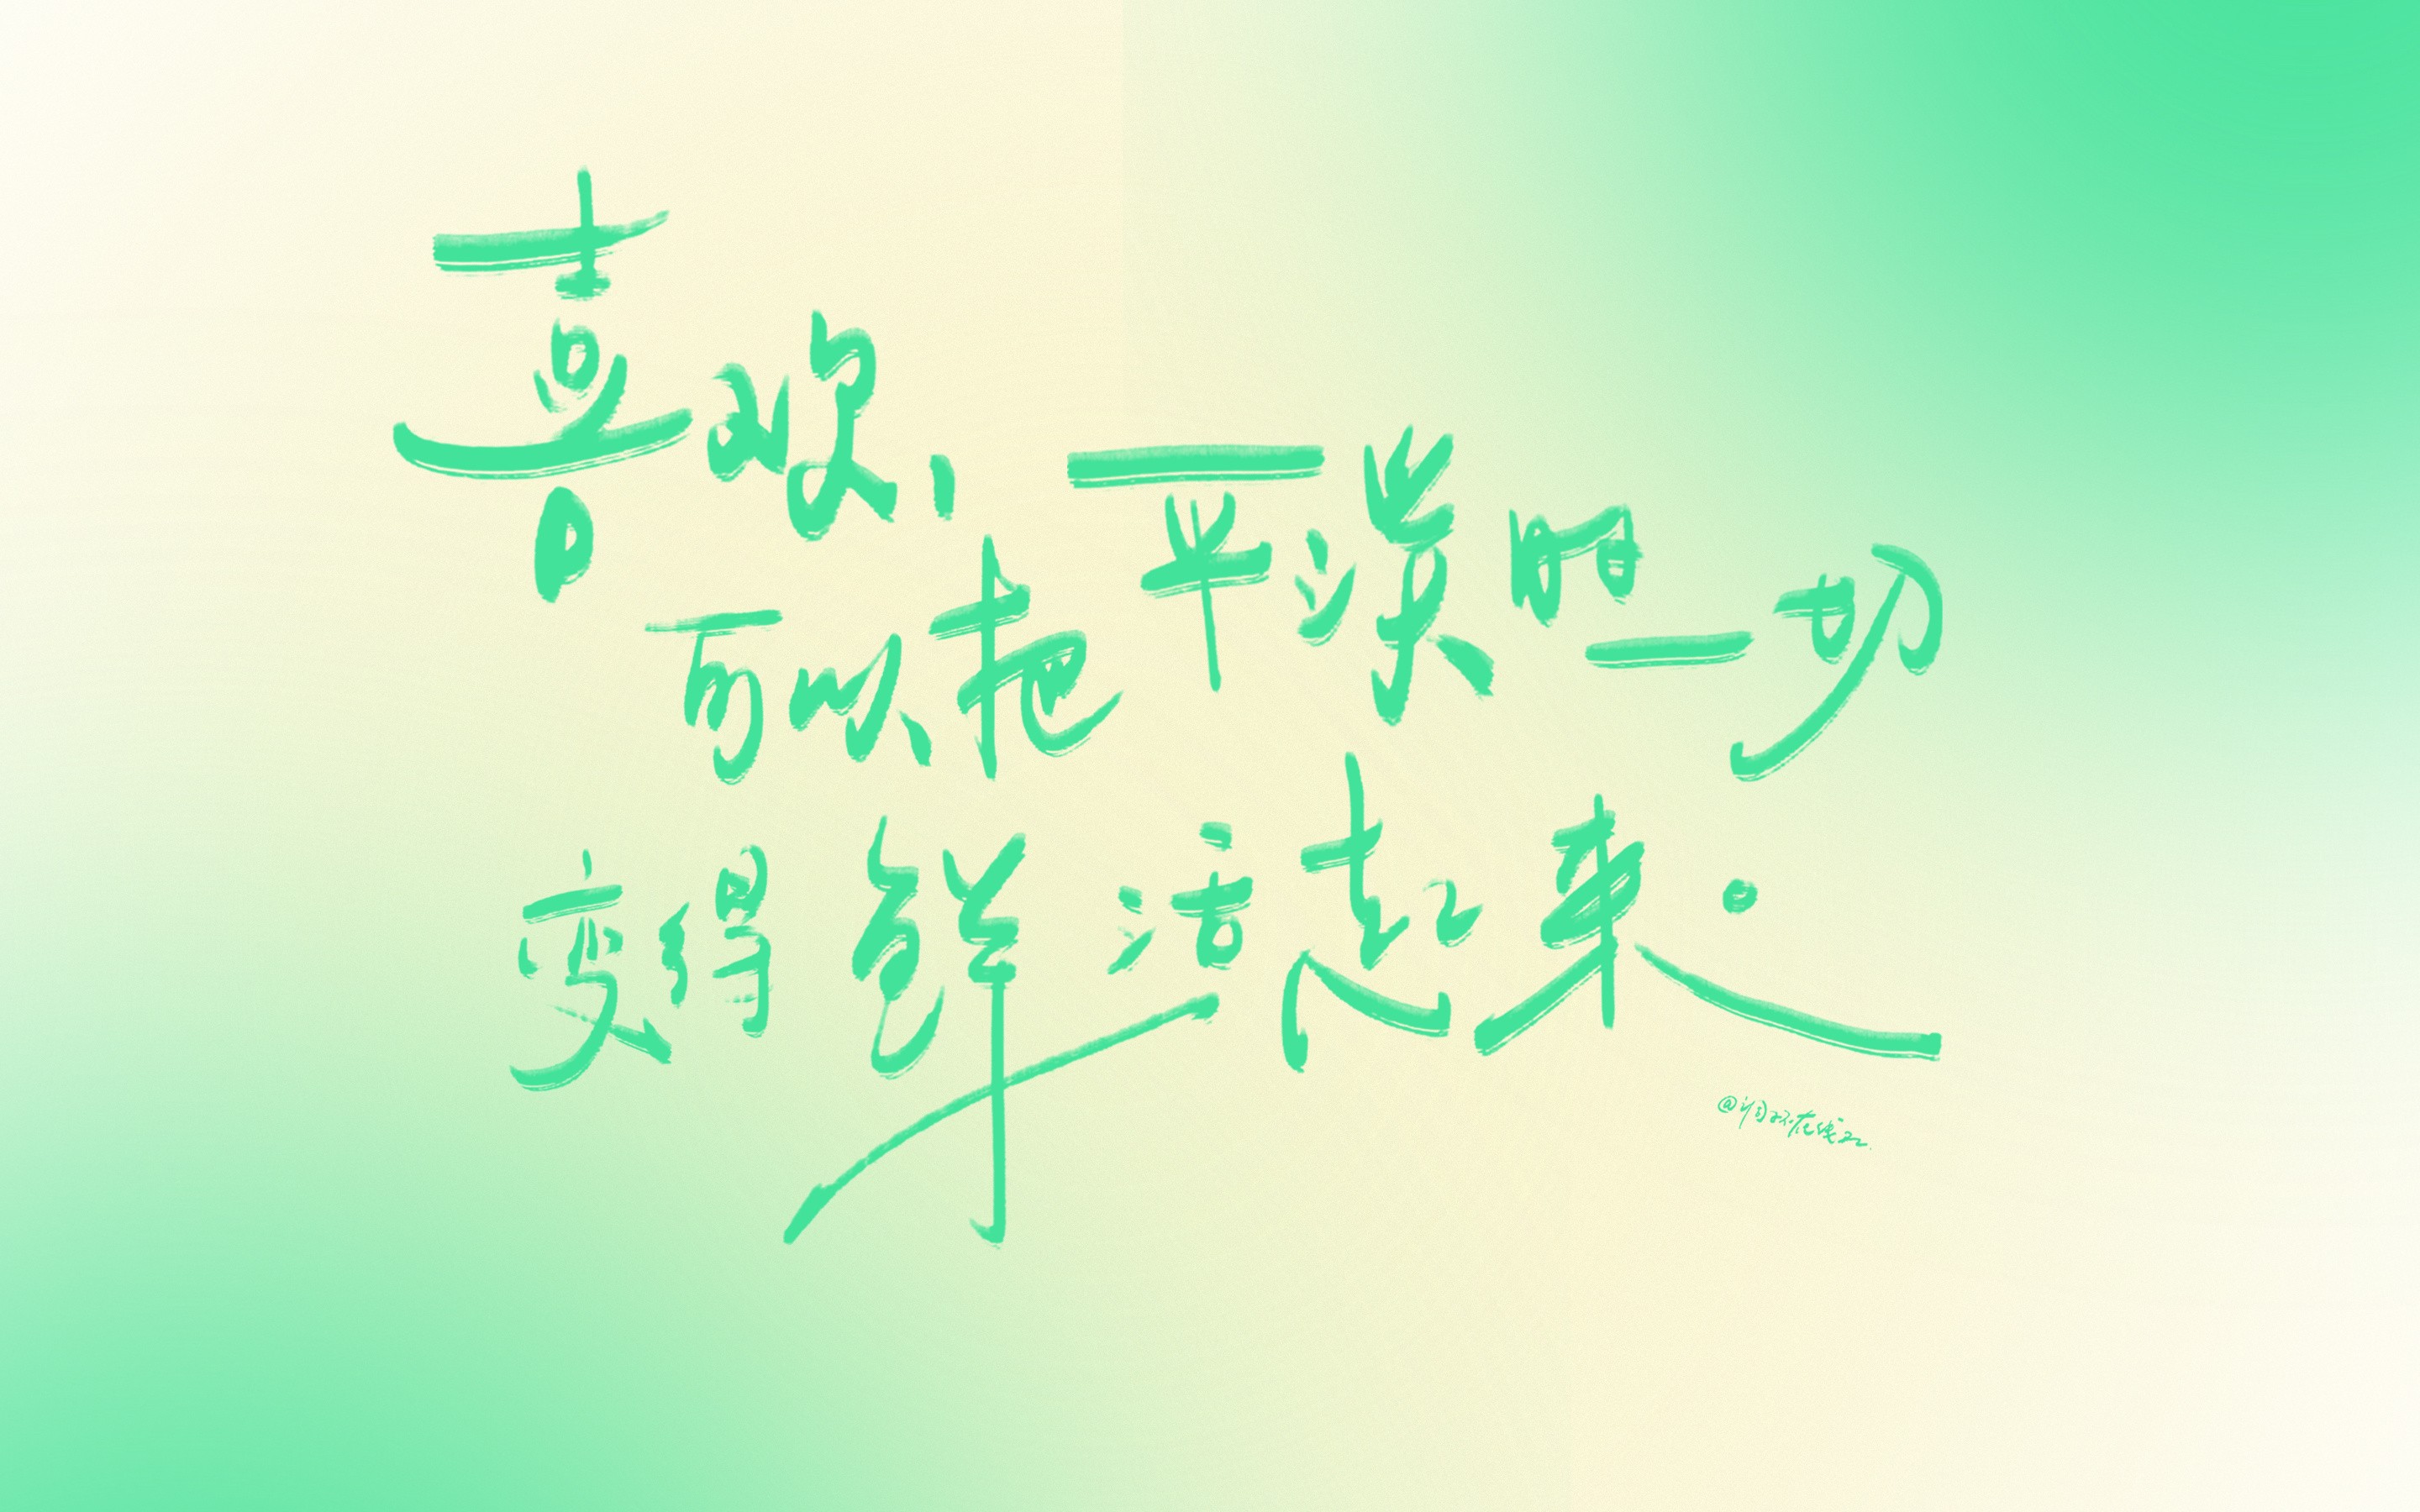 喜欢,
可以把平淡的一切
变得鲜活起来。